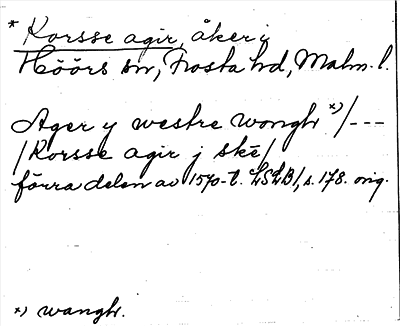 * Korsse agir, åker i
Höörs sn, Frosta hd, Malm. l.
Ager y westre wongh *)/---
/Korsse agir j skē/
förra delen av 1570-t. LSLB1, s. 178. orig.
*) wangh.